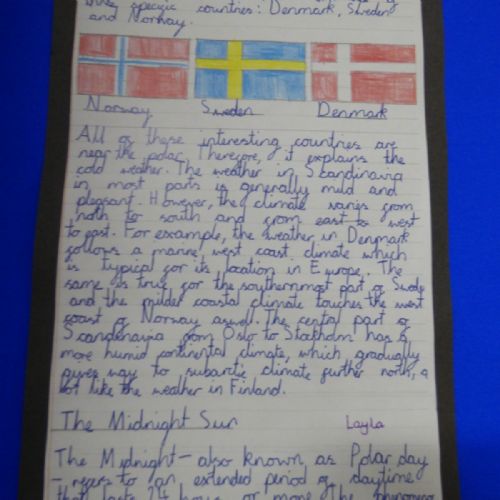 specific countries: Denmark, Sweden
and Norway.
Norway Sweden Denmark
All of these interesting countries are
near the polar. Therefore, it explains the
cold weather. The weather in Scandinavia
in most parts is generally mild and
pleasant. However, the climate varies from
north to south and from east to west
to east. For example, the weather in Denmark
follows a marine west coast climate which
is typical for its location in Europe. The
same is true for the southernmost part of Swede
and the milder coastal climate touches the west
coast of Norway aswell. The central part of
Scandenavia from Oslo to Stockholm has a
more humid continental climate, which gradually
gives way to subarctic climate further north, a
lot like the weather in Finland.
The Midnight Sun Layla
The Midnight - also known as Polar day
- refers to an extended period of daytime
that lasts 24 hours or more. The